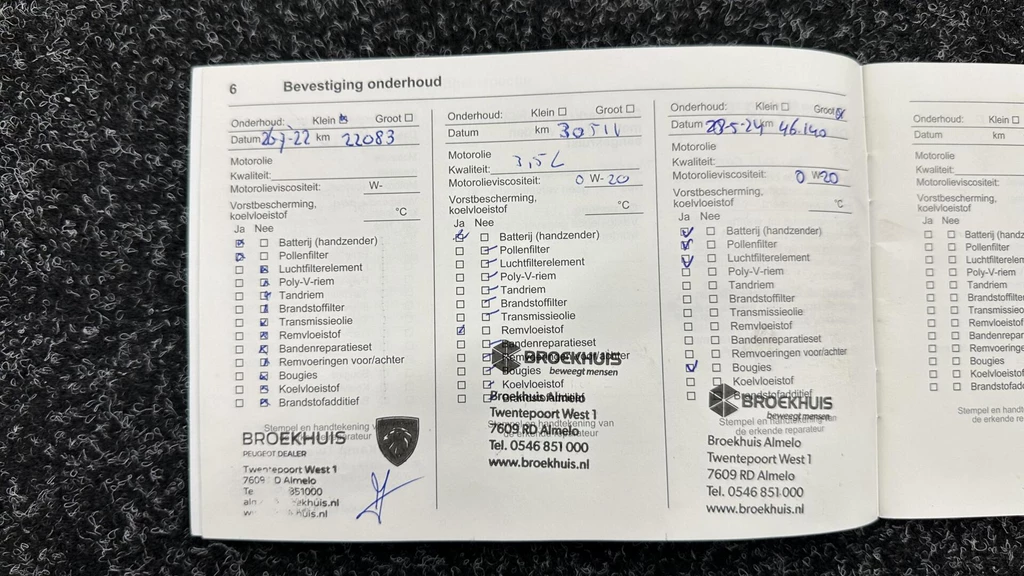 6 Bevestiging onderhoud
Onderhoud: Klein Groot
Datum 26-7-22 km 22083
Motorolie
Kwaliteit:
Motorolieviscositeit: W-
Vorstbescherming,
koelvloeistof °C
Ja Nee
Batterij (handzender)
Pollenfilter
Luchtfilterelement
Poly-V-riem
Tandriem
Brandstoffilter
Transmissieolie
Remvloeistof
Bandenreparatieset
Remvoeringen voor/achter
Bougies
Koelvloeistof
Brandstofadditief
Stempel en handtekening
reparateur
BROEKHUIS
PEUGEOT DEALER
Twentepoort West 1
7609 D Almelo
Te 851000
khuis.nl
huis.nl
Onderhoud: Klein Groot
Datum km 30511
Motorolie
Kwaliteit: 3,5L
Motorolieviscositeit: 0 W-20
Vorstbescherming,
koelvloeistof °C
Ja Nee
Batterij (handzender)
Pollenfilter
Luchtfilterelement
Poly-V-riem
Tandriem
Brandstoffilter
Transmissieolie
Remvloeistof
Bandenreparatieset
Remvoeringen voor/achter
Bougies
Koelvloeistof
Brandstofadditief
Stempel en handtekening van
de erkende reparateur
BROEKHUIS
beweegt mensen
Broekhuis Almelo
Twentepoort West 1
7609 RD Almelo
Tel. 0546 851 000
www.broekhuis.nl
Onderhoud: Klein Groot
Datum 28-5-24 km 46.140
Motorolie
Kwaliteit:
Motorolieviscositeit: 0 W20
Vorstbescherming,
koelvloeistof °C
Ja Nee
Batterij (handzender)
Pollenfilter
Luchtfilterelement
Poly-V-riem
Tandriem
Brandstoffilter
Transmissieolie
Remvloeistof
Bandenreparatieset
Remvoeringen voor/achter
Bougies
Koelvloeistof
Brandstofadditief
Stempel en handtekening van
de erkende reparateur
BROEKHUIS
beweegt mensen
Broekhuis Almelo
Twentepoort West 1
7609 RD Almelo
Tel. 0546 851 000
www.broekhuis.nl
Onderhoud: Klein
Datum km
Motorolie
Kwaliteit:
Motorolieviscositeit:
Vorstbescherming,
koelvloeistof
Ja Nee
Batterij (handz
Pollenfilter
Luchtfilterelem
Poly-V-riem
Tandriem
Brandstoffilter
Transmissieo
Remvloeistof
Bandenrepar
Remvoeringe
Bougies
Koelvloeistof
Brandstofadd
Stempel en handte
de erkende repa